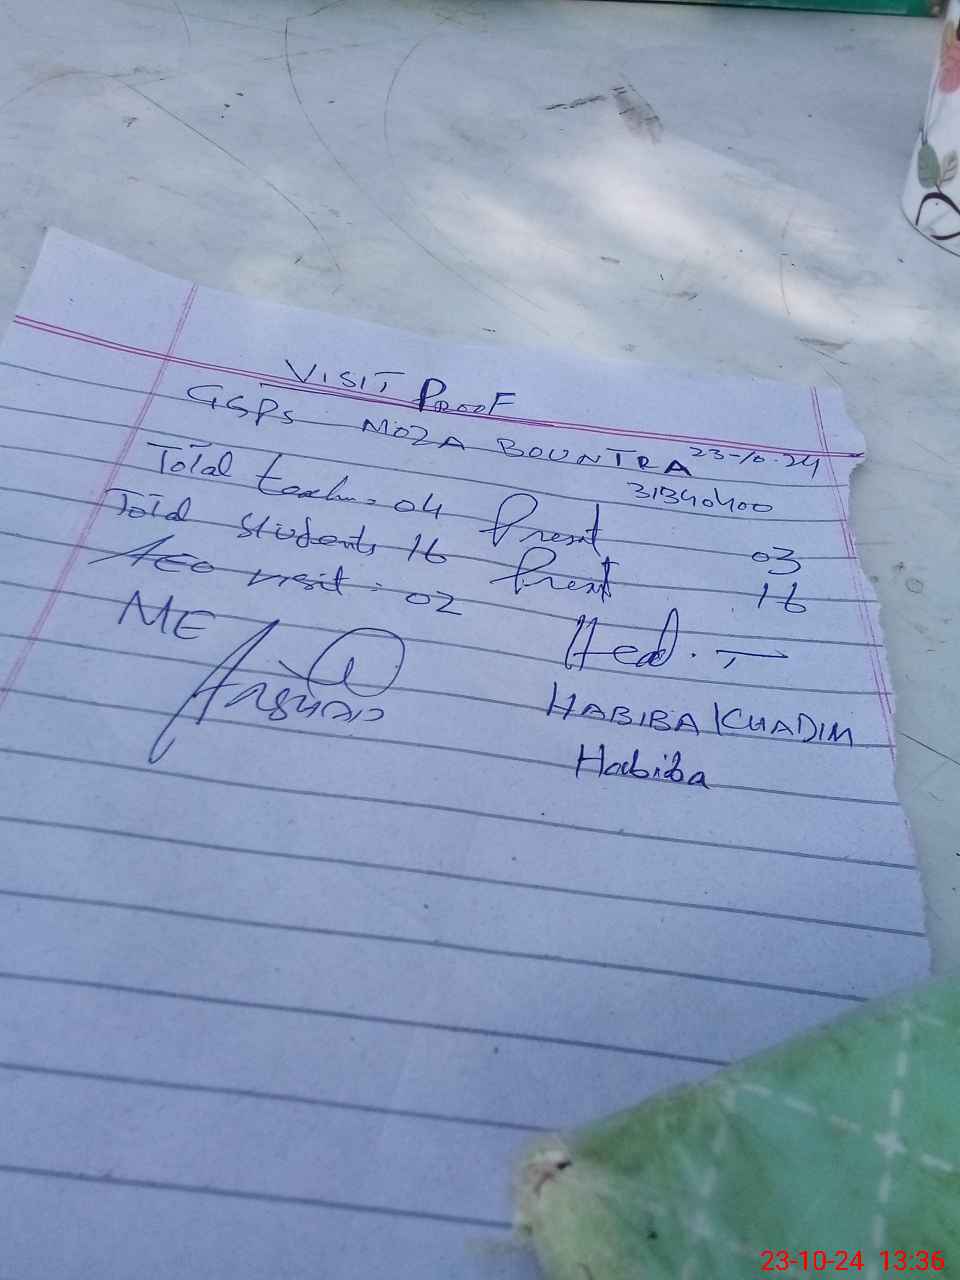 VISIT PROOF
GGPS MOZA BOUNTRA 23-10-24
31340400
Total teachers 04 Present 03
Total Students 16 Present 16
AEO visit : 02
ME
Head. -
HABIBA KHADIM
Habiba
23-10-24 13:36